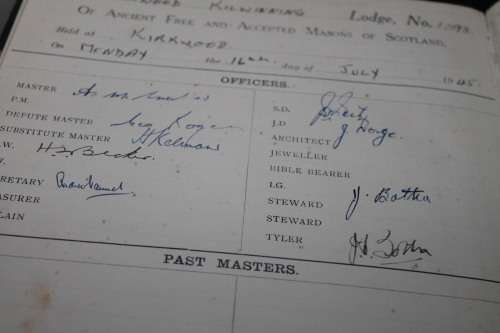 KILWINNING Lodge, No. 1098
OF ANCIENT FREE AND ACCEPTED MASONS OF SCOTLAND.
Held at KIRKWOOD
On MONDAY the 16th day of JULY 1945
OFFICERS.
MASTER
P.M.
DEPUTE MASTER Geo
SUBSTITUTE MASTER
W. H. S. Becker
W.
RETARY
ASURER
LAIN
S.D.
J.D
ARCHITECT
JEWELLER
BIBLE BEARER
I.G.
STEWARD J. Botha
STEWARD
TYLER J. Botha
PAST MASTERS.